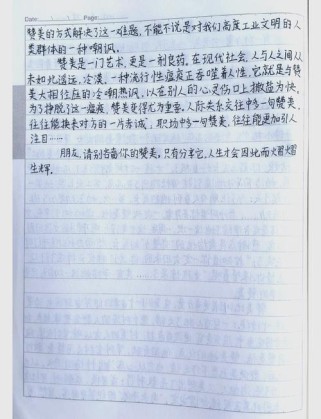 Date: Page:
赞美的方式解决了这一难题,不能不说是对我们高度工业文明的人
类群体的一种嘲讽。
赞美是一门艺术,更是一剂良药,在现代社会,人与人之间从
未如此遥远、冷漠,一种流行性瘟疫正吞噬着人性,它就是与赞
美大相径庭的冷嘲热讽,以在别人的心灵伤口上撒盐为快。
为了挣脱了这一瘟疫,赞美变得尤为重要。人际关系交往中多一句赞美,
往往能换来对方的一片赤诚;职场中多一句赞美,往往能更加引人
注目……
朋友,请别吝啬你的赞美,只有分享它,人生才会因此而熠熠
生辉.